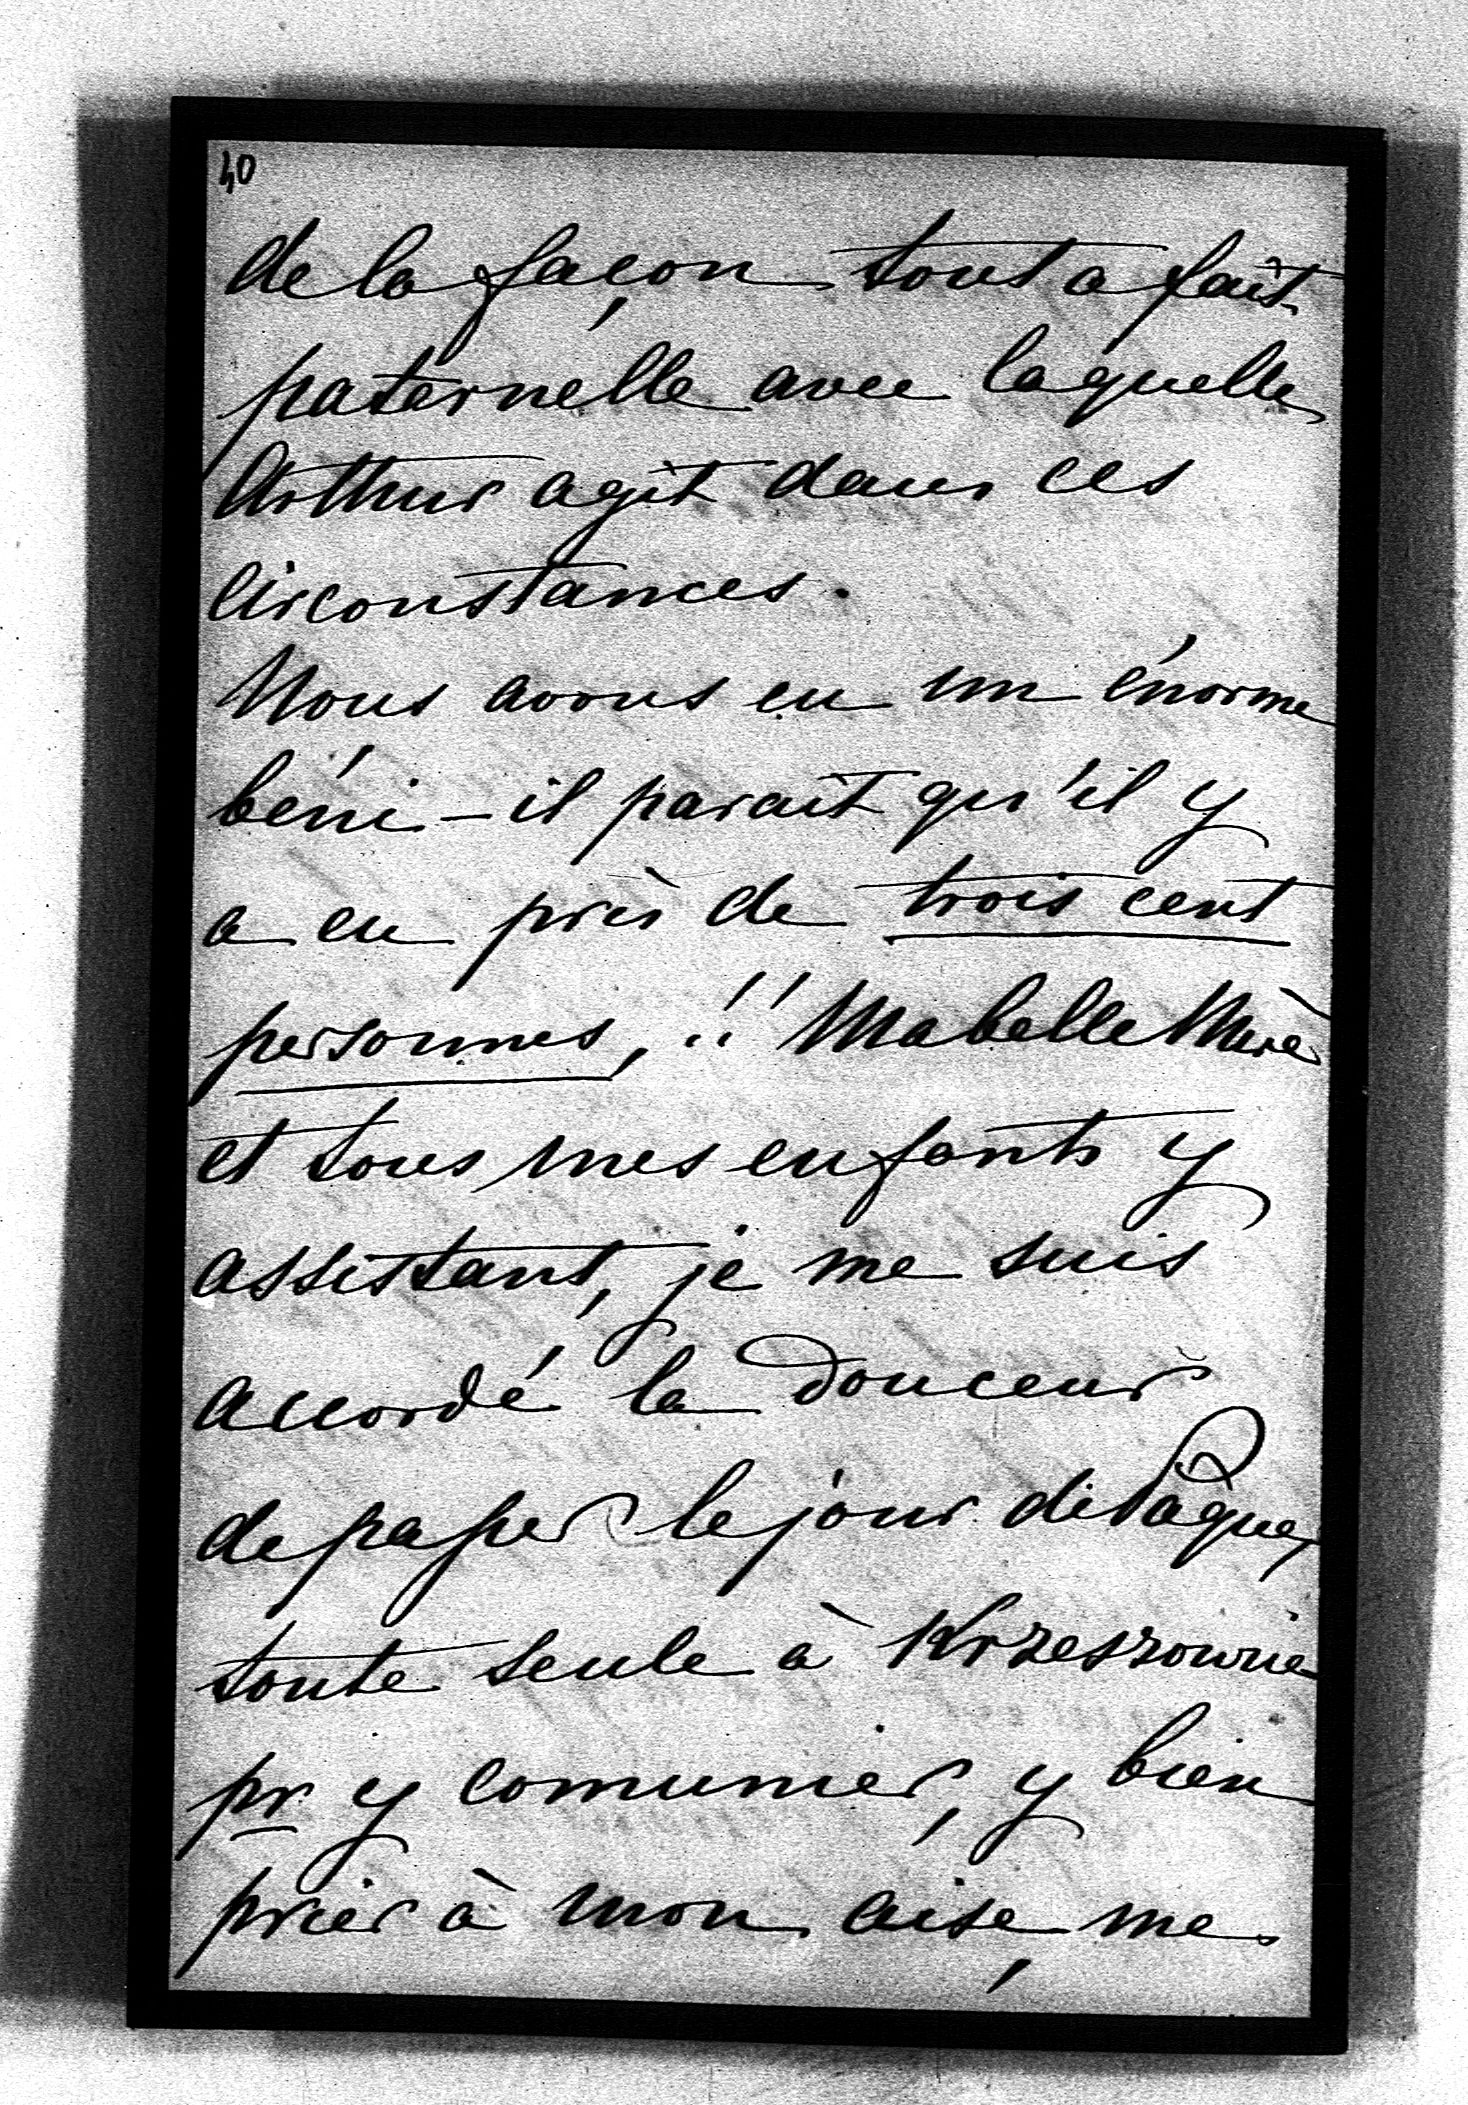 40
de la façon tout a fait
paternelle avec laquelle
Arthur agit dans ces
circonstances.
Nous avons eu un énorme
béni – il parait qu'il y
a eu près de trois cent
personnes, !! Ma belle Mère
et tous mes enfants y
assistant, je me suis
accordé la douceur
de passer le jour de Pâques
toute seule à Krzeszowice
pr y comunier, y bien
prier à mon aise, me